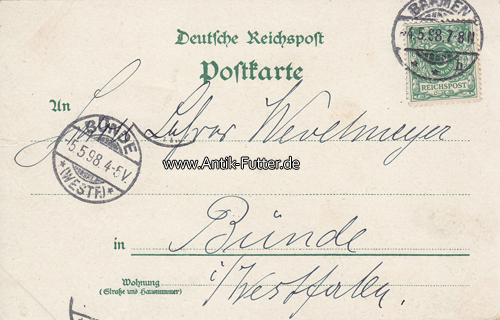 BARMEN
4.5.98.7-8N
* * b.
REICHSPOST
Deutsche Reichspost
Postkarte
An
BÜNDE
5.5.98.4-5V.
*(WESTF.)*
www.Antik-Futter.de
in Bünde
i/Westfalen.
Wohnung
(Straße und Hausnummer)